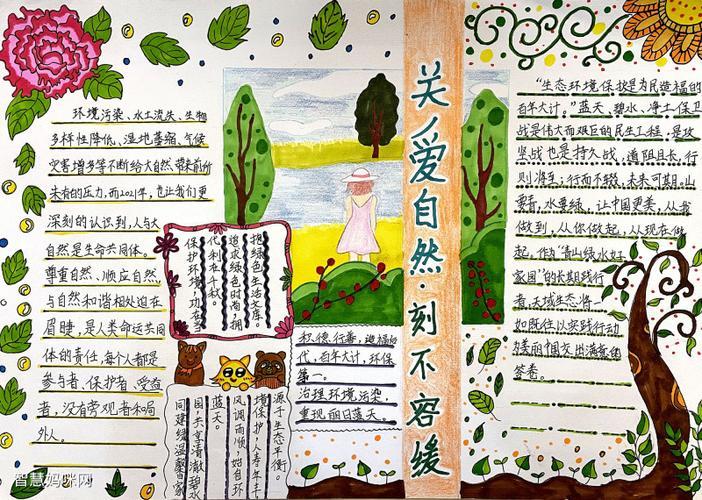 环境污染、水土流失、生物
多样性降低、湿地萎缩、气候
灾害增多等不断给大自然带来前所
未有的压力,而2021年,也让我们更
深刻的认识到,人与大
自然是生命共同体。
尊重自然、顺应自然,
与自然和谐相处迫在
眉睫,是人类命运共同
体的责任,每个人都是
参与者、保护者、受益
者,没有旁观者和局
外人。
拒绿色生活文库。
追求绿色时尚,拥
代利在千秋。
保护环境,功在当
源于生态平衡。
境保护,人寿年丰
风调而顺,始自环
蓝天。
国,共享清澈碧水
同建缘温馨家
积德行善,造福后
代,百年大计,环保
第一。
治理环境污染,
重现丽日蓝天。
关爱自然·刻不容缓
“生态环境保护是为民造福的
百年大计。”蓝天、碧水、净土保卫
战是伟大而艰巨的民生工程,是攻
坚战也是持久战,道阻且长,行
则将至;行而不辍,未来可期。山
要青,水要绿,让中国更美,从我
做到,从你做起,从现在做
起。作为“青山绿水好
家园”的长期践行
者,天域生态将一
如既往以实践行动
为美丽中国交出满意的
答卷。
智慧妈咪网